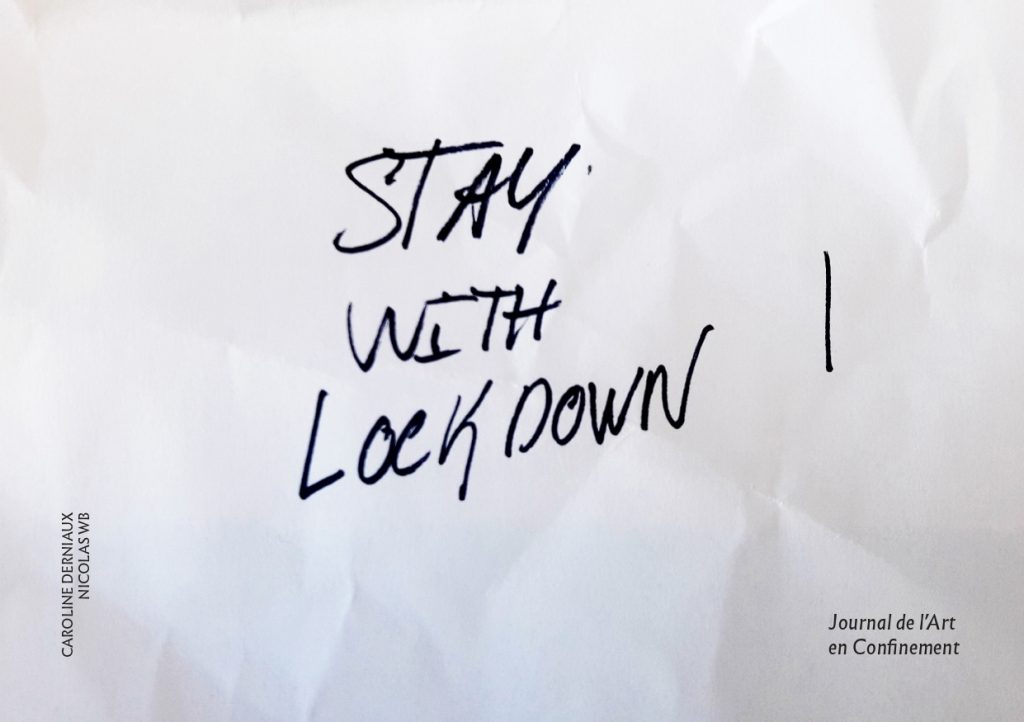 STAY
WITH
LOCKDOWN
|
CAROLINE DERNIAUX
NICOLAS WB
Journal de l'Art
en Confinement